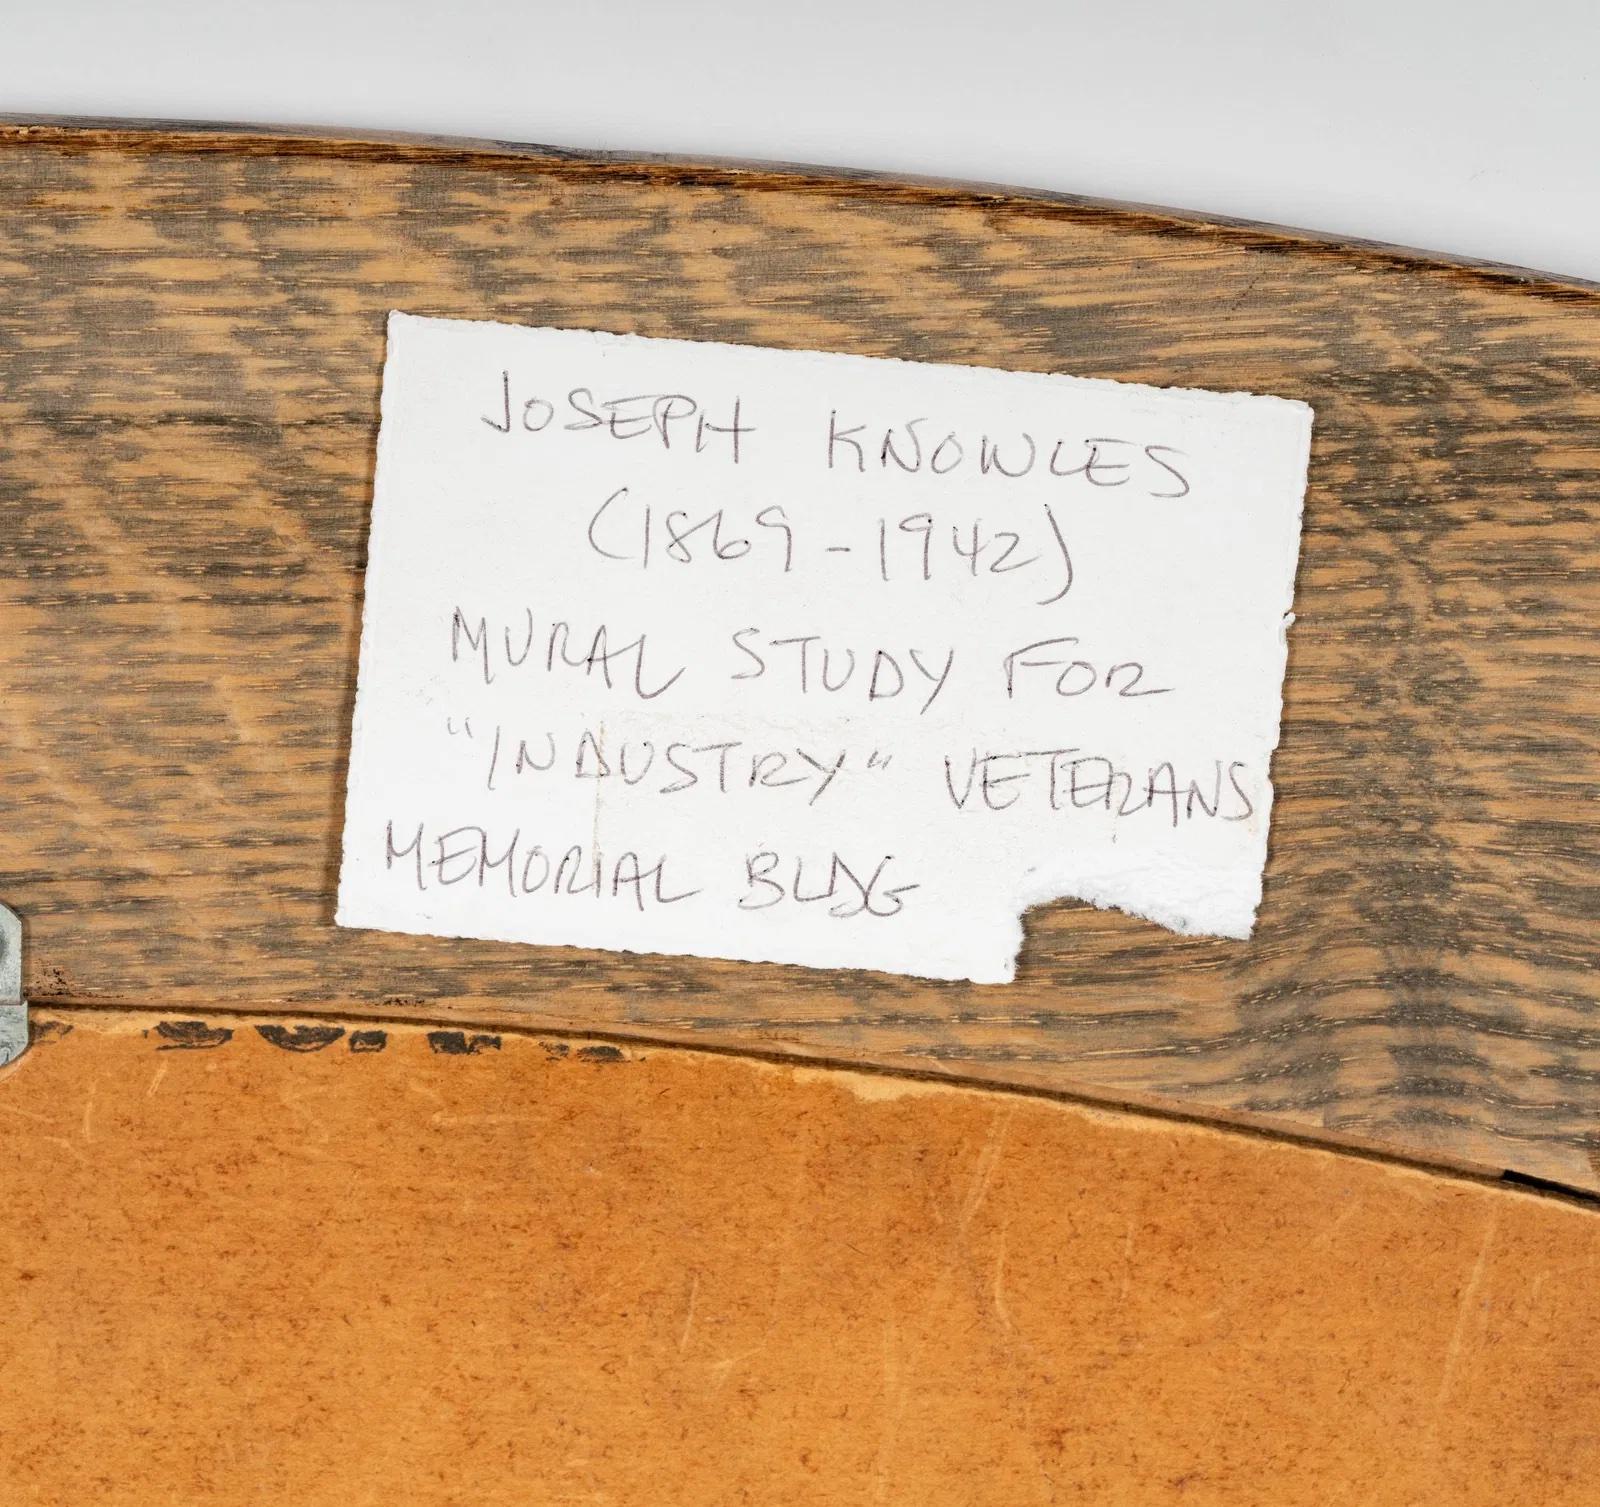 JOSEPH KNOWLES
(1869-1942)
MURAL STUDY FOR
"INDUSTRY" VETERANS
MEMORIAL BLDG